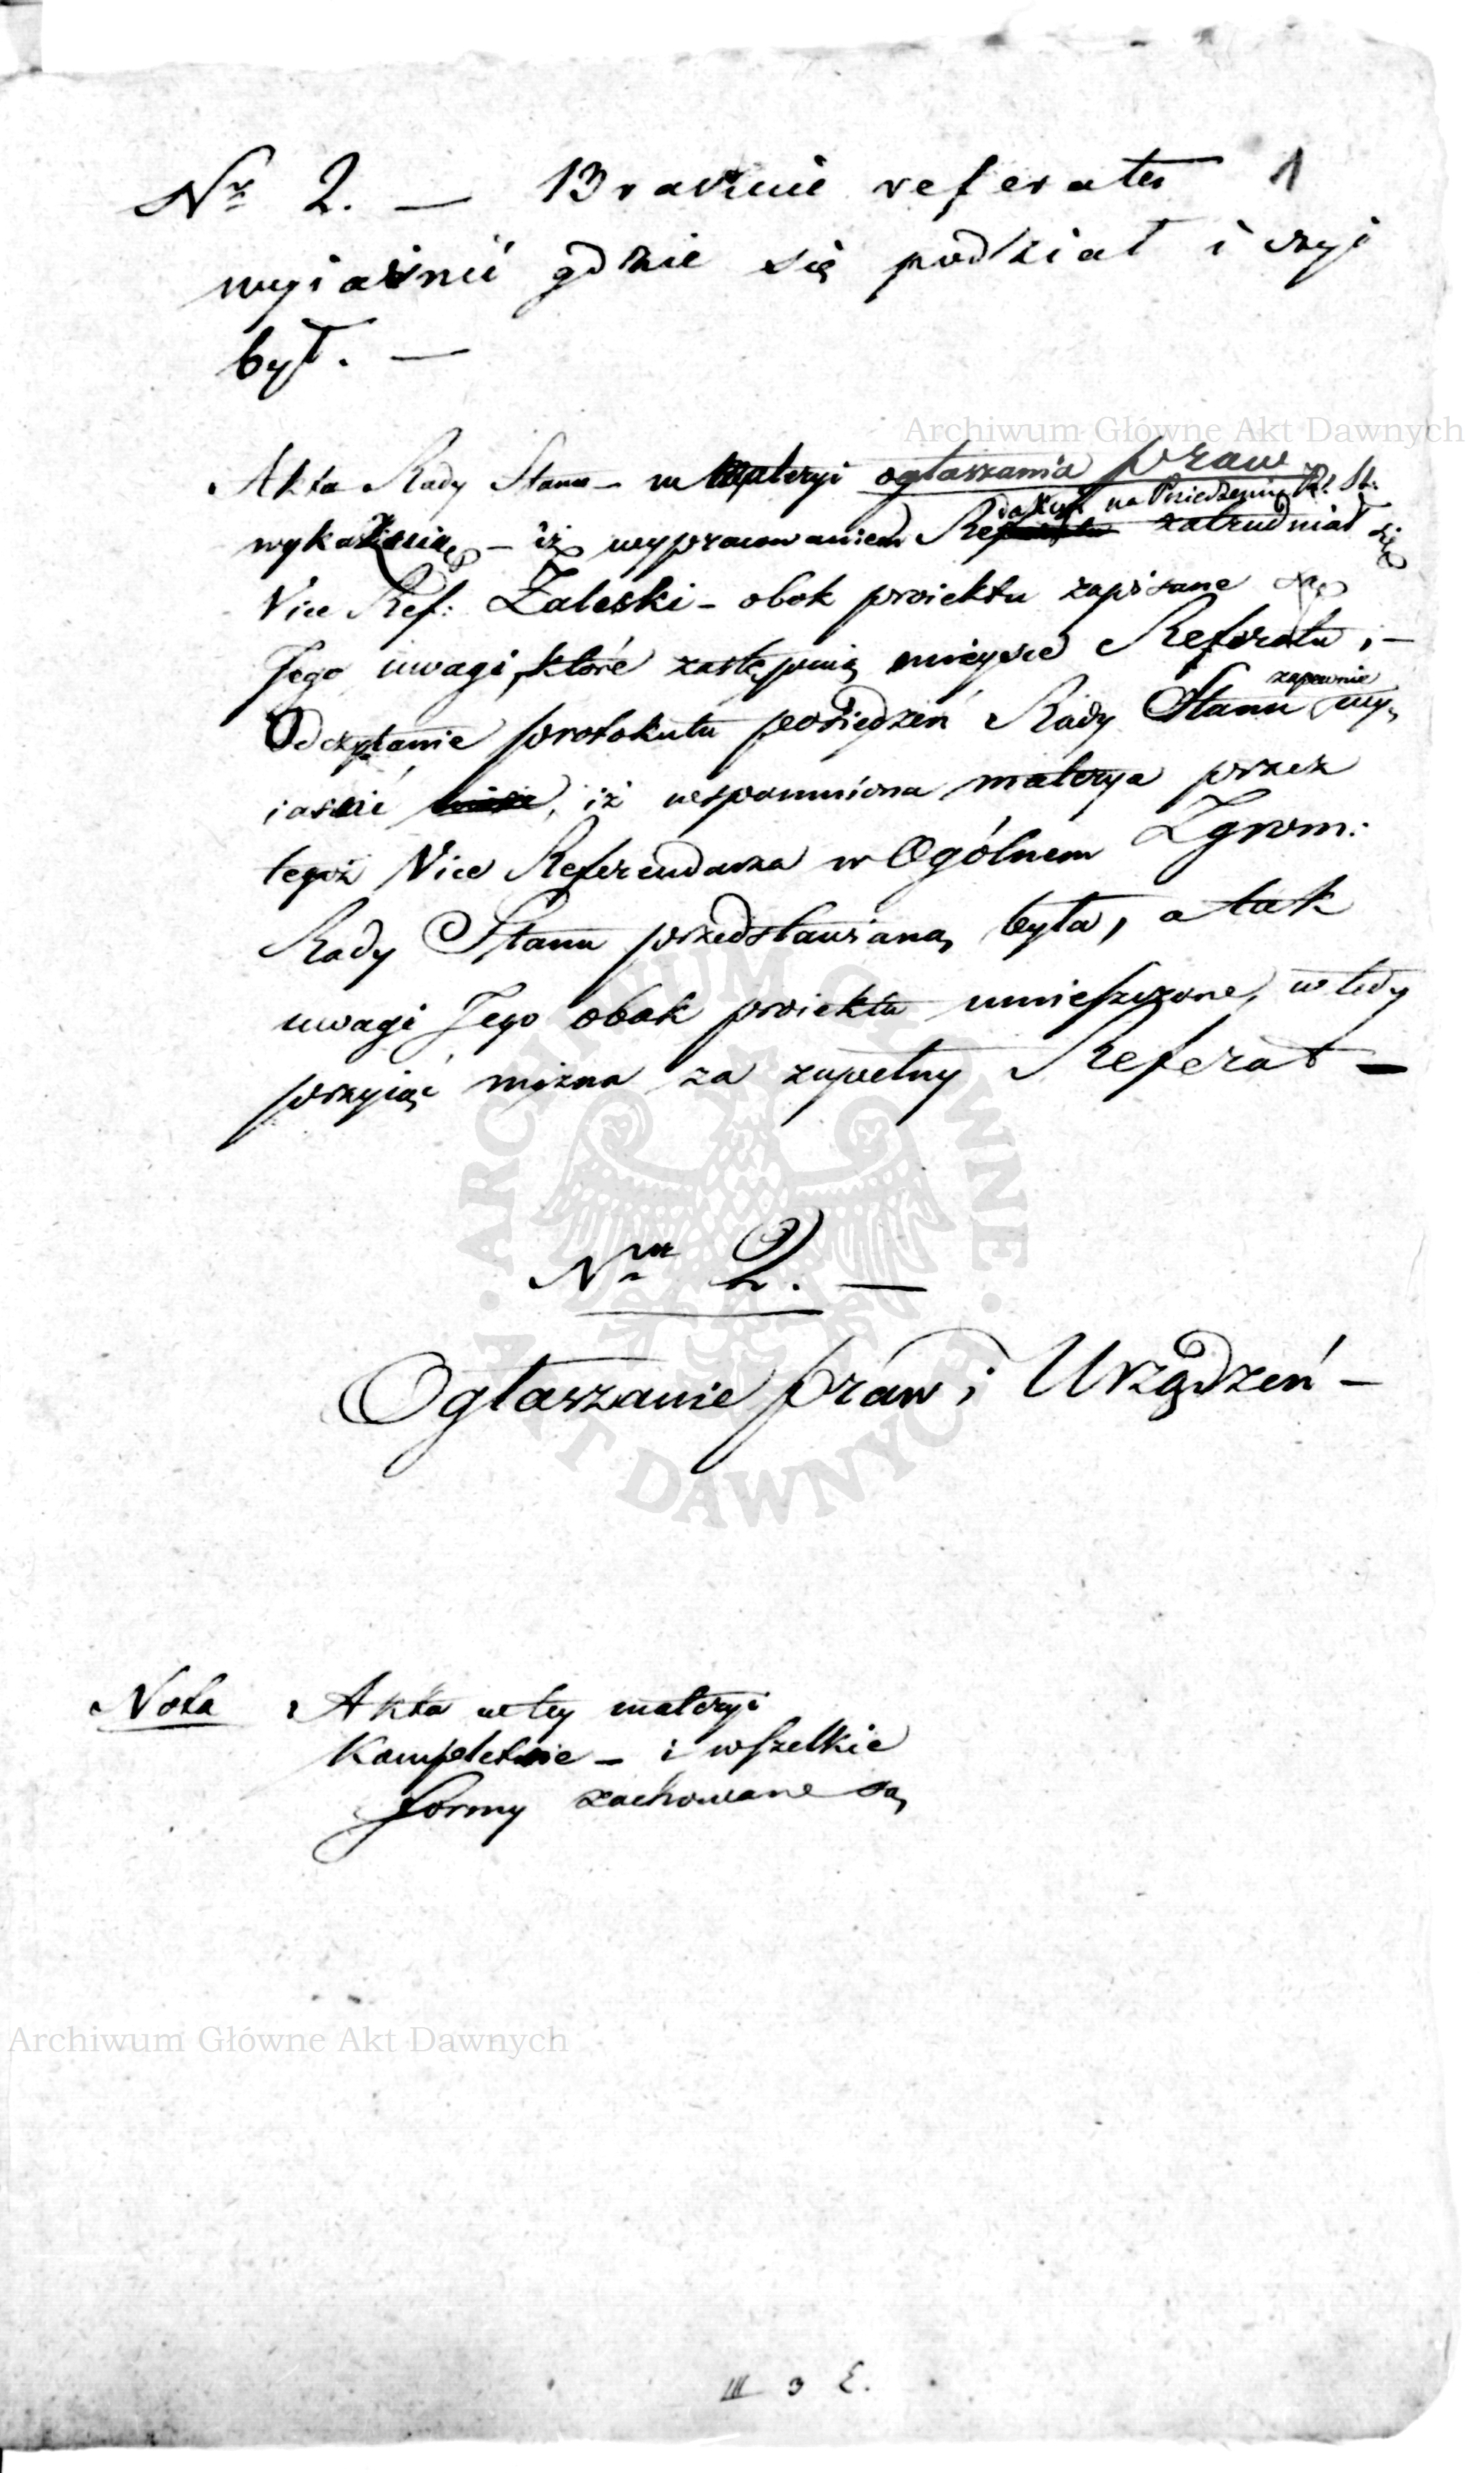 1
Nr 2. — Braknie referatu
wyiaśnić gdzie się podział i czyi
był. —
Archiwum Główne Akt Dawnych
Akta Rady Stanu – w materyi ogłaszania praw
na Posiedzeniu R: St:
wykazuią – iż wypracowaniem zatrudniał się
Vice Ref: Zaleski – obok proiektu zapisane są
Jego uwagi, które zastępuią mieysce Referatu, –
zapewnie
Odczytanie protokułu posiedzeń Rady Stanu wy-
iaśni, iż wspomniona materya przez
tegoż Vice Referendarza w Ogólnem Zgrom:
Rady Stanu przedstawiana była, a tak
uwagi Jego obok proiektu umieszczone, wtedy
przyiąć można za zupełny Referat –
Nr 2. —
Ogłaszanie praw i Urządzeń –
Nota Akta w tey materyi
Kompletnie – i wszelkie
formy zachowane są
ARCHIWUM GŁÓWNE AKT DAWNYCH
Archiwum Główne Akt Dawnych
III 3 E.